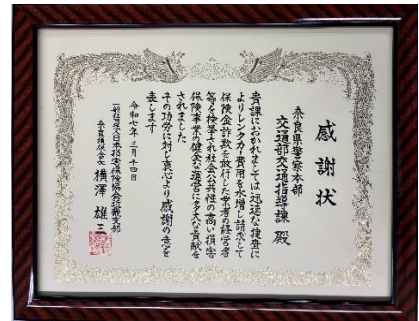 感謝状
奈良県警察本部
交通部交通指導課 殿
貴課におかれましては迅速な捜査に
よりレンタカー費用を水増し請求して
保険金詐欺を敢行した業者の経営者
等を検挙され社会公共性の高い損害
保険事業の健全な運営に多大な貢献を
されました
その功労に対し衷心より感謝の意を
表します
令和七年 三月十四日
一般社団法人日本損害保険協会近畿支部
横澤 雄三